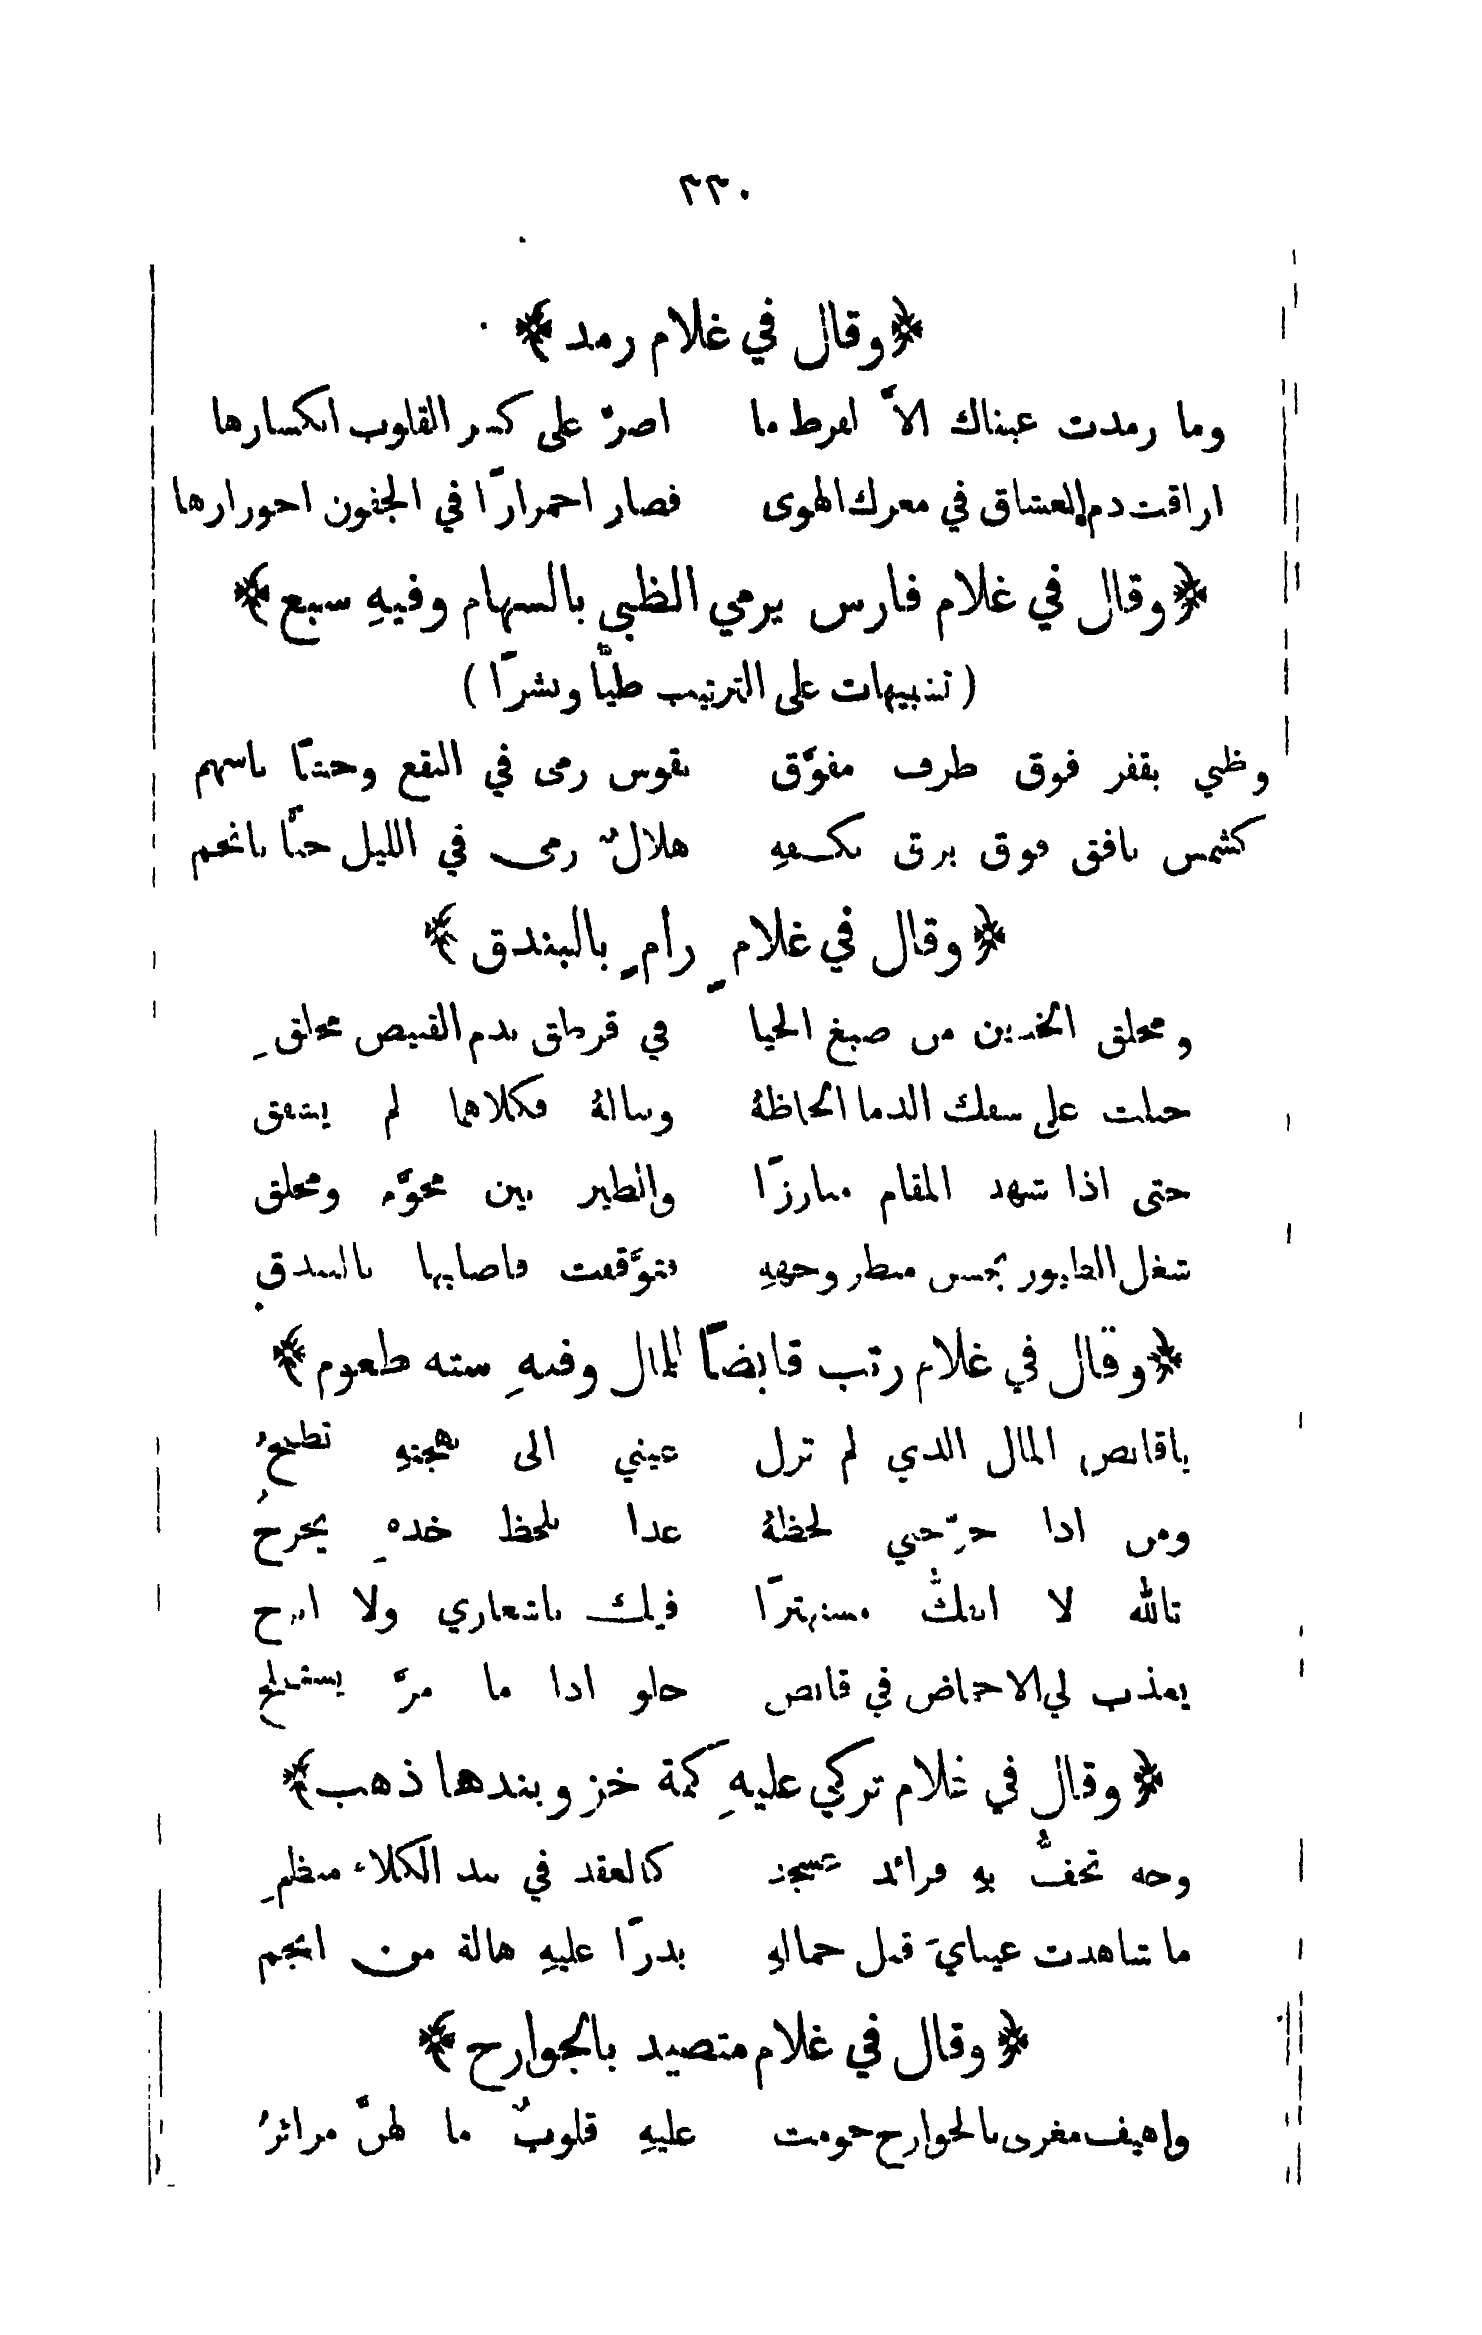 ٣٣٠
﴿وقال في غلام رمد﴾
وما رمدت عيناك الاَّ لفرط ما اصرَّ على كسر القلوب انكسارها
اراقت دم العشاق في معرك الهوى فصار احمرارًا في الجفون احورارها
﴿وقال في غلام فارس يرمي الظبي بالسهام وفيهِ سبع﴾
(تشبيهات على الترتيب طيًّا ونشرًا)
وظبي بقفر فوق طرف مفوَّق بقوس رمى في النقع وحشًا باسهم
كشمس بافق فوق برق بكفهِ هلالٌ رمى في الليل جنًّا بانجم
﴿وقال في غلامٍ رامٍ بالبندق﴾
ومخلق الخدين من صبغ الحيا في قرطق بدم القنيص مخلقِ
جبلت على سفك الدما الحاظهُ ونباله فكلاهما لم يشفق
حتى اذا شهد المقام مبارزًا والطير بين محوَّم ومحلق
شغل الطيور بحسن منظر وجههِ فتوَّقفت فاصابها بالبندق
﴿وقال في غلام رتب قابضًا للمال وفيهِ سته طعوم﴾
ياقابض المال الذي لم تزل عيني الى بهجتهِ تطمحُ
ومن اذا جرَّحني لحظهُ غدا بلحظ خدهِ يجرحُ
تالله لا انفكُّ مستهترًا فيك باشعاري ولا ابرح
يعذب لي الاحماض في قابض حلو اذا ما مرَّ يستملح
﴿وقال في غلام تركي عليهِ كمة خز وبندها ذهب﴾
وجه تحفُّ بهِ فرائد عسجد كالعقد في بند الكلاء منظمِ
ما شاهدت عينايَ قبل جمالهِ بدرًا عليهِ هالة من انجم
﴿وقال في غلام متصيد بالجوارح﴾
واهيف مغرى بالجوارح حومت عليهِ قلوبٌ ما لهنَّ مرائرُ